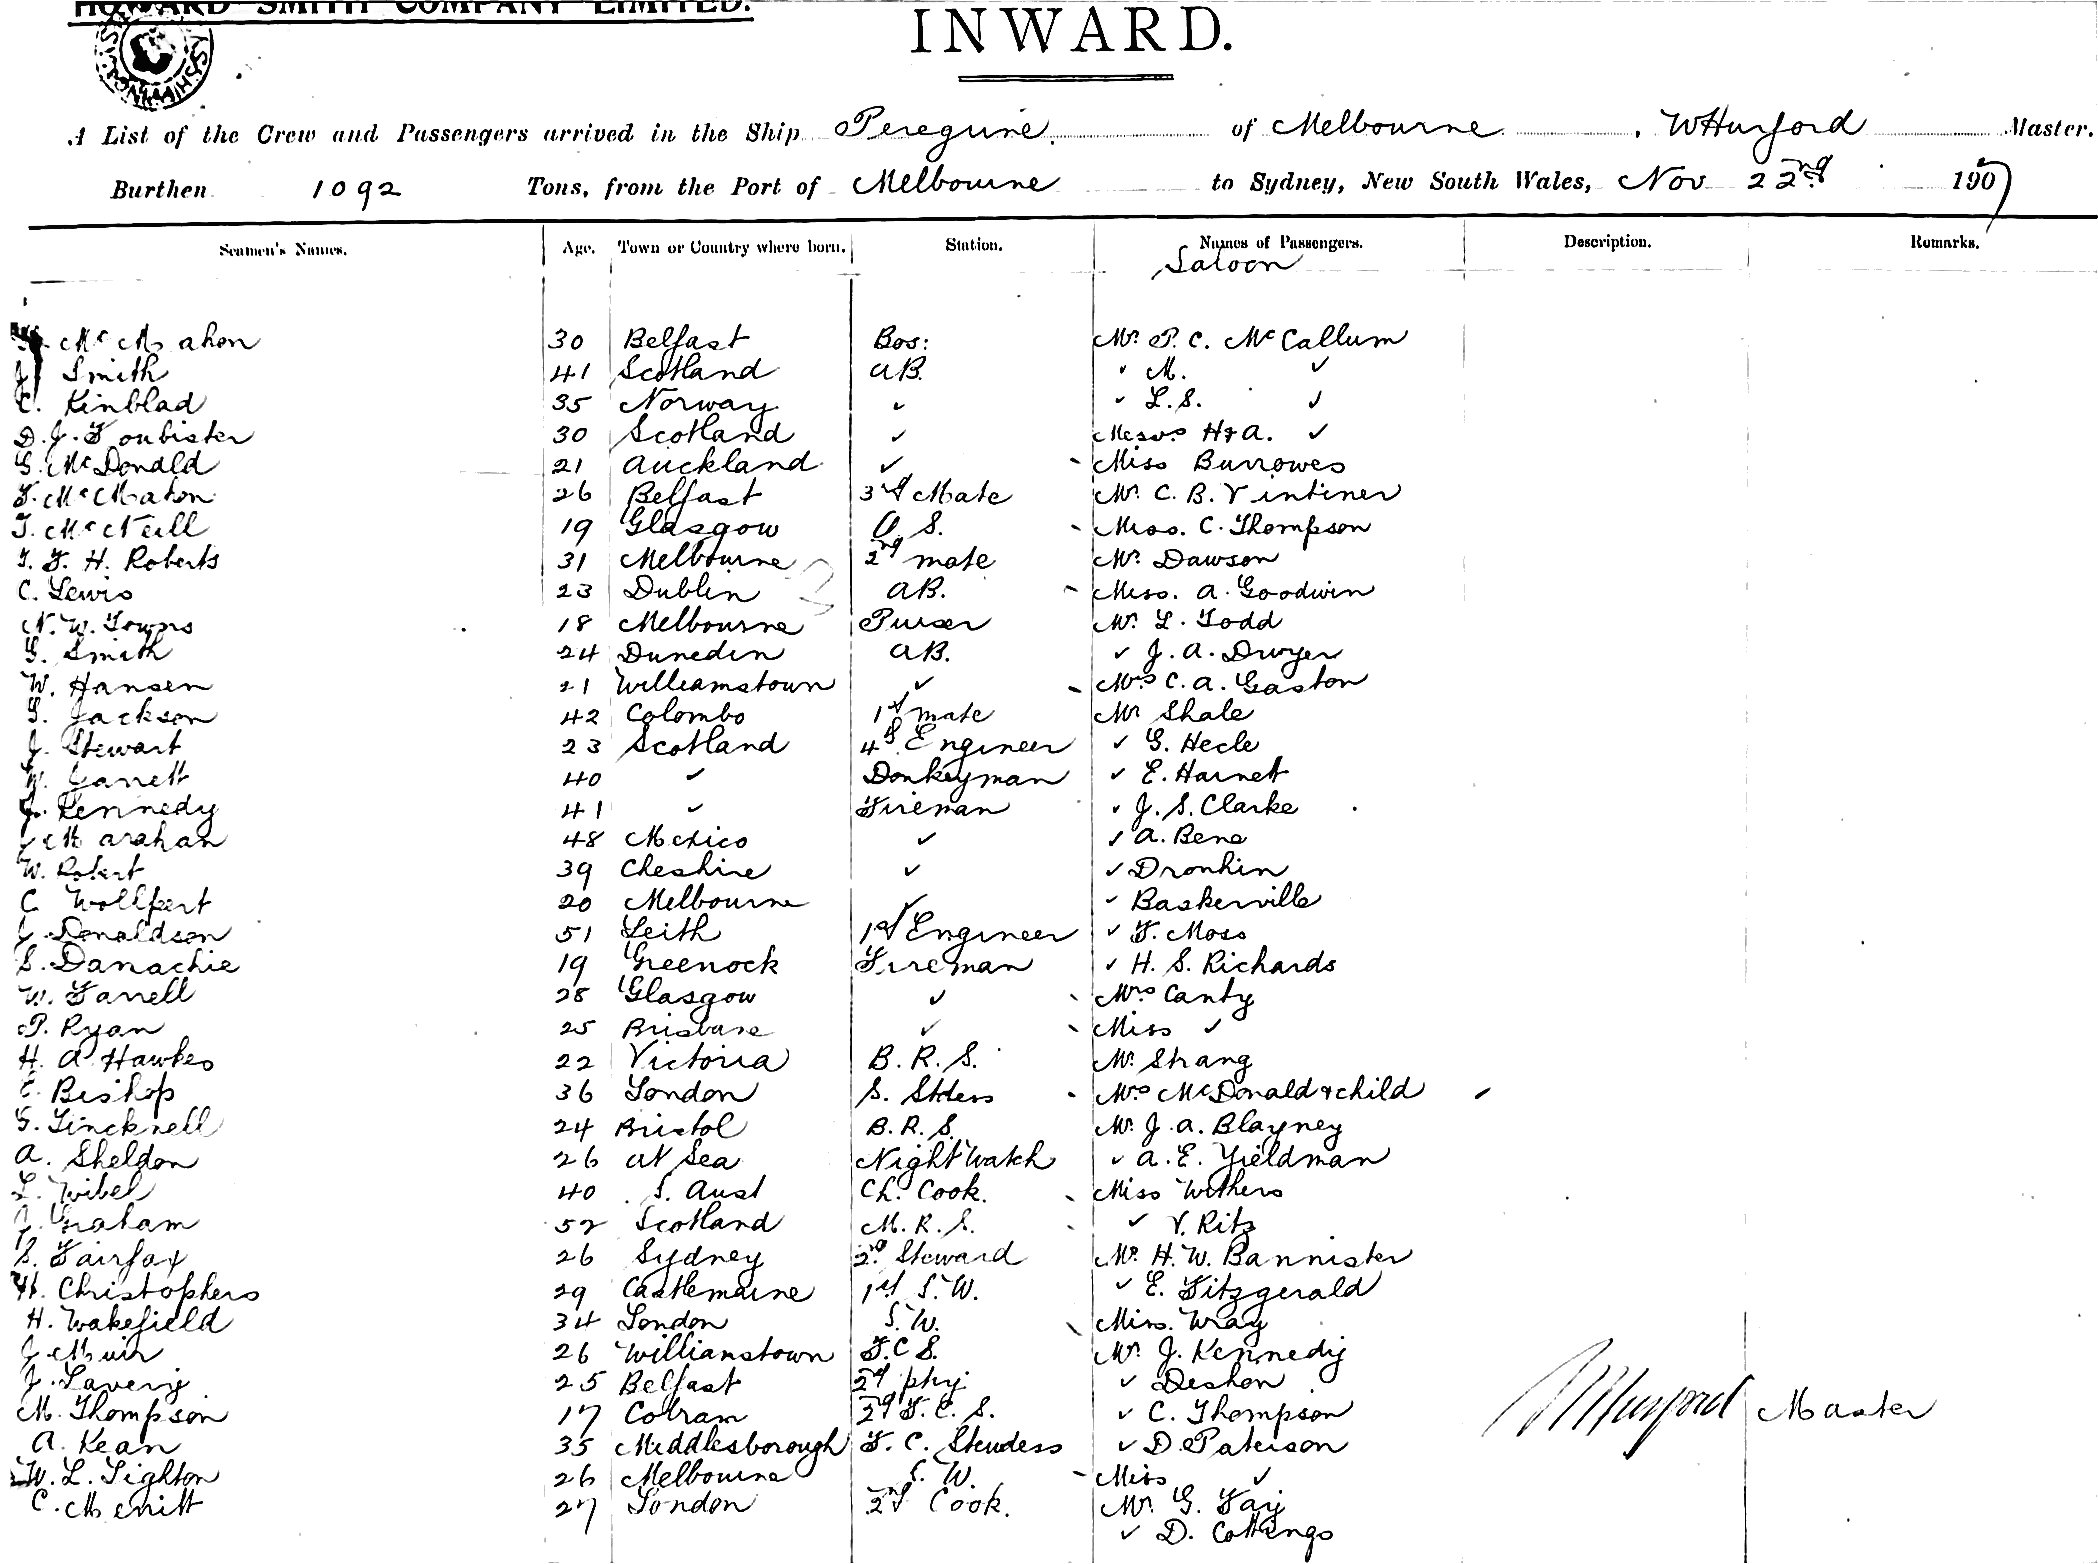 HOWARD SMITH COMPANY LIMITED.
INWARD.
A List of the Crew and Passengers arrived in the Ship Peregrine. of Melbourne. , WHurford Master.
Burthen 1092 Tons, from the Port of Melbourne to Sydney, New South Wales, Nov 22nd 1907
Seamen's Names. Age. Town or Country where born. Station. Names of Passengers. Description. Remarks.
Saloon
McMahon 30 Belfast Bos: Mr. P. C. McCallum
J Smith 41 Scotland AB. " M. "
C. Kinblad 35 Norway " " L.S. "
D. J. Foubister 30 Scotland " Messrs H & A. "
G. McDonald 21 Auckland " Miss Burrowes
F. McMahon 26 Belfast 3rd Mate Mr. C. B. Vintiner
T. McNeill 19 Glasgow O. S. Miss. C. Thompson
T. F. H. Roberts 31 Melbourne 2nd mate Mr. Dawson
C. Lewis 23 Dublin AB. Miss. A. Goodwin
N. W. Towers 18 Melbourne Purser Mr. L. Todd
G. Smith 24 Dunedin AB. " J. A. Dwyer
W. Hansen 21 Williamstown " Mrs C. A. Gaston
G. Jackson 42 Colombo 1st mate Mr Shale
J. Stewart 23 Scotland 4th Engineer " G. Hecle
W. Garrett 40 " Donkeyman " E. Harnet
J. Kennedy 41 " Fireman " J. S. Clarke
J Marahan 48 Mexico " " A. Bene
W. Robert 39 Cheshire " " Dronhin
C Wollfert 20 Melbourne " " Baskerville
J. Donaldson 51 Leith 1st Engineer " F. Moss
S. Danachie 19 Greenock Fireman " H. S. Richards
W. Farrell 28 Glasgow " Mrs Canty
P. Ryan 25 Brisbane " Miss "
H. A Hawkes 22 Victoria B. R. S. Mr. Shang
E. Bishop 36 London S. Stdess Mrs McDonald & child
G. Tincknell 24 Bristol B. R. S. Mr. J. A. Blayney
A. Sheldon 26 At Sea Night Watch " A. E. Yieldman
L. Wibel 40 S. Aust Ch. Cook. Miss Withers
J. Graham 52 Scotland M. R. S. " V. Ritz
S. Fairfax 26 Sydney 2nd Steward Mr. H. W. Bannister
H. Christophers 29 Castlemaine 1st S. W. " E. Fitzgerald
H. Wakefield 34 London S. W. Miss. Wray
J. Muir 26 Williamstown F. C S. Mr. J. Kennedy
J. Lavery 25 Belfast 2nd pty " Deshon
M. Thompson 17 Cobram 2nd F. C. S. " C. Thompson
A. Kean 35 Middlesborough F. C. Stewdess " D. Paterson
W. L. Tighton 26 Melbourne S. W. Miss "
C. Merritt 27 London 2nd Cook. Mr. G. Fay
" D. Cottings
WHurford Master